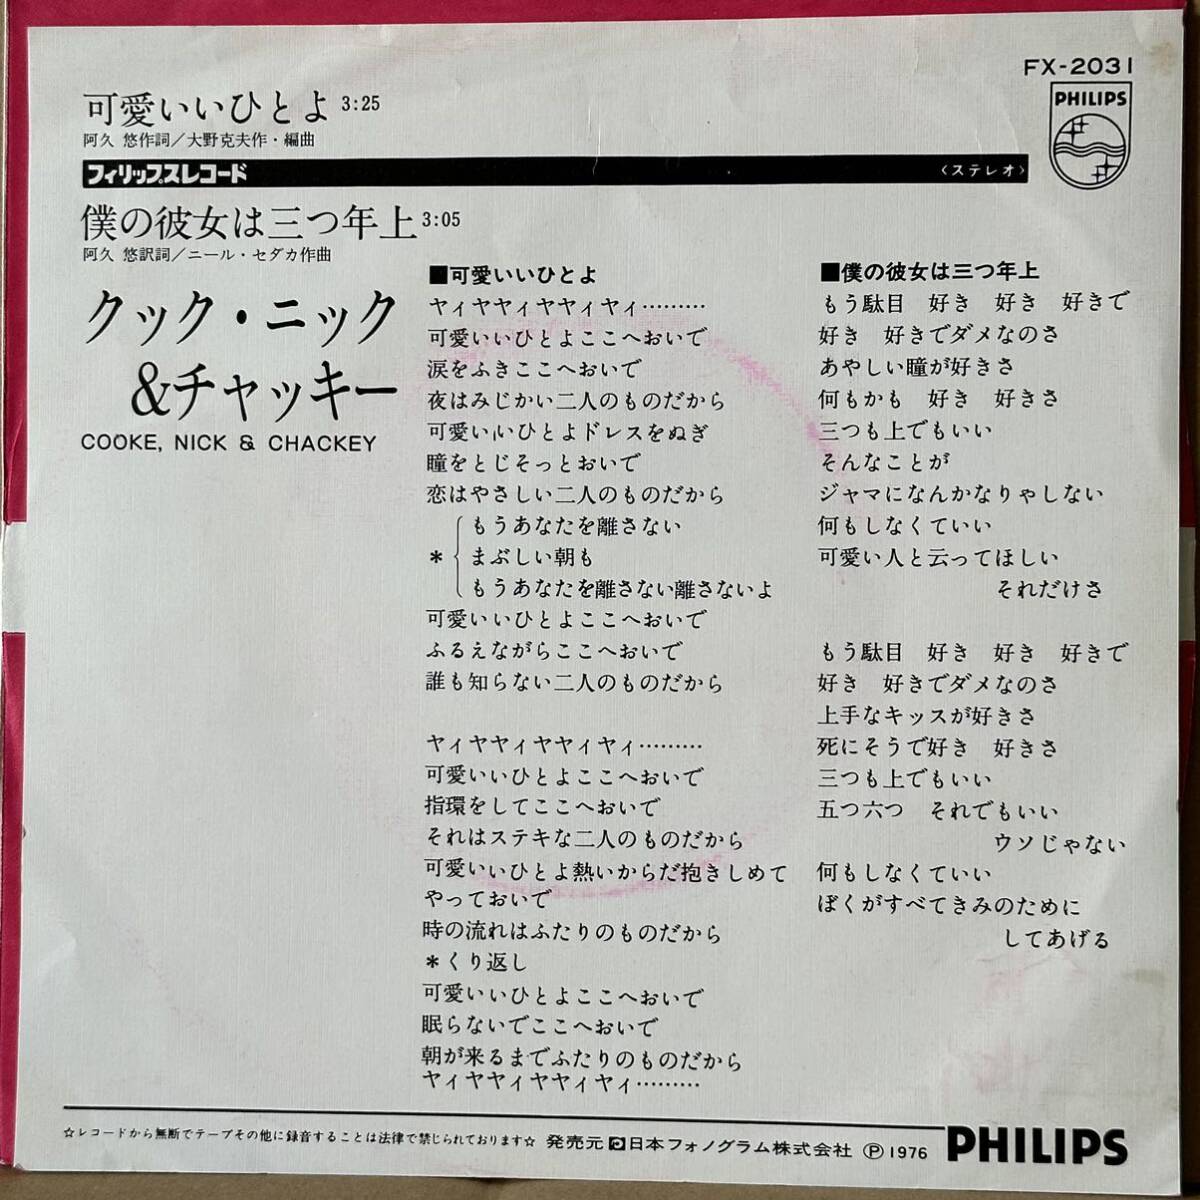 FX-2031
PHILIPS
可愛いいひとよ 3:25
阿久 悠作詞／大野克夫作・編曲
フィリップスレコード 〈ステレオ〉
僕の彼女は三つ年上 3:05
阿久 悠訳詞／ニール・セダカ作曲
クック・ニック
&チャッキー
COOKE, NICK & CHACKEY
■可愛いいひとよ
ヤィヤヤィヤヤィヤィ………
可愛いいひとよここへおいで
涙をふきここへおいで
夜はみじかい二人のものだから
可愛いいひとよドレスをぬぎ
瞳をとじそっとおいで
恋はやさしい二人のものだから
もうあなたを離さない
＊ まぶしい朝も
もうあなたを離さない離さないよ
可愛いいひとよここへおいで
ふるえながらここへおいで
誰も知らない二人のものだから
ヤィヤヤィヤヤィヤィ………
可愛いいひとよここへおいで
指環をしてここへおいで
それはステキな二人のものだから
可愛いいひとよ熱いからだ抱きしめて
やっておいで
時の流れはふたりのものだから
＊くり返し
可愛いいひとよここへおいで
眠らないでここへおいで
朝が来るまでふたりのものだから
ヤィヤヤィヤヤィヤィ………
■僕の彼女は三つ年上
もう駄目 好き 好き 好きで
好き 好きでダメなのさ
あやしい瞳が好きさ
何もかも 好き 好きさ
三つも上でもいい
そんなことが
ジャマになんかなりゃしない
何もしなくていい
可愛い人と云ってほしい
それだけさ
もう駄目 好き 好き 好きで
好き 好きでダメなのさ
上手なキッスが好きさ
死にそうで好き 好きさ
三つも上でもいい
五つ六つ それでもいい
ウソじゃない
何もしなくていい
ぼくがすべてきみのために
してあげる
☆レコードから無断でテープその他に録音することは法律で禁じられております☆ 発売元 日本フォノグラム株式会社 Ⓟ1976 PHILIPS